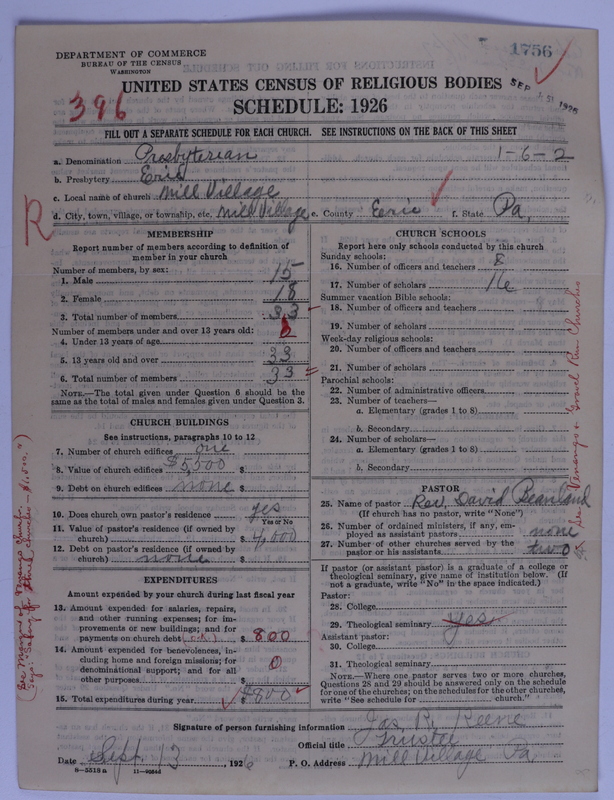 DEPARTMENT OF COMMERCE
BUREAU OF THE CENSUS
WASHINGTON
1756
396
UNITED STATES CENSUS OF RELIGIOUS BODIES
SCHEDULE: 1926
FILL OUT A SEPARATE SCHEDULE FOR EACH CHURCH. SEE INSTRUCTIONS ON THE BACK OF THIS SHEET
a. Denomination Presbyterian 1-6-2
b. Presbytery Erie
c. Local name of church Mill Village
d. City, town, village, or township, etc. Mill Village e. County Erie f. State Pa.
R
MEMBERSHIP
Report number of members according to definition of
member in your church
Number of members, by sex:
1. Male 15
2. Female 18
3. Total number of members 33
Number of members under and over 13 years old:
4. Under 13 years of age
5. 13 years old and over 33
6. Total number of members 33
NOTE.—The total given under Question 6 should be
same as the total of males and females given under Question 3.
CHURCH BUILDINGS
See instructions, paragraphs 10 to 12
7. Number of church edifices one
8. Value of church edifices $5,500 $
9. Debt on church edifices none $
10. Does church own pastor's residence? yes
Yes or No
11. Value of pastor's residence (if owned by
church) $ 4,000
12. Debt on pastor's residence (if owned by
church) none $
EXPENDITURES
Amount expended by your church during last fiscal year
13. Amount expended for salaries, repairs,
and other running expenses; for im-
provements or new buildings; and for
payments on church debt $ 800
14. Amount expended for benevolences, in-
cluding home and foreign missions; for
denominational support; and for all
other purposes $ 0
15. Total expenditures during year $800
CHURCH SCHOOLS
Report here only schools conducted by this church
Sunday schools:
16. Number of officers and teachers 8
17. Number of scholars 16
Summer vacation Bible schools:
18. Number of officers and teachers
19. Number of scholars
Week-day religious schools:
20. Number of officers and teachers
21. Number of scholars
Parochial schools:
22. Number of administrative officers
23. Number of teachers—
a. Elementary (grades 1 to 8)
b. Secondary
24. Number of scholars—
a. Elementary (grades 1 to 8)
b. Secondary
PASTOR
25. Name of pastor Rev. David Beanland
(If church has no pastor, write "None")
26. Number of ordained ministers, if any, em-
ployed as assistant pastors none
27. Number of other churches served by the
pastor or his assistants two
If pastor (or assistant pastor) is a graduate of a college or
theological seminary, give name of institution below. (If
not a graduate, write "No" in the space indicated.)
Pastor:
28. College
29. Theological seminary yes
Assistant pastor:
30. College
31. Theological seminary
NOTE.—Where one pastor serves two or more churches,
Questions 28 and 29 should be answered only on the schedule
for one of the churches; on the schedules for the other churches,
write "See schedule for church."
Signature of person furnishing information Jas R. Keene
Official title Trustee
Date Sept 13, 1926 P. O. Address Mill Village Pa
8-5518a